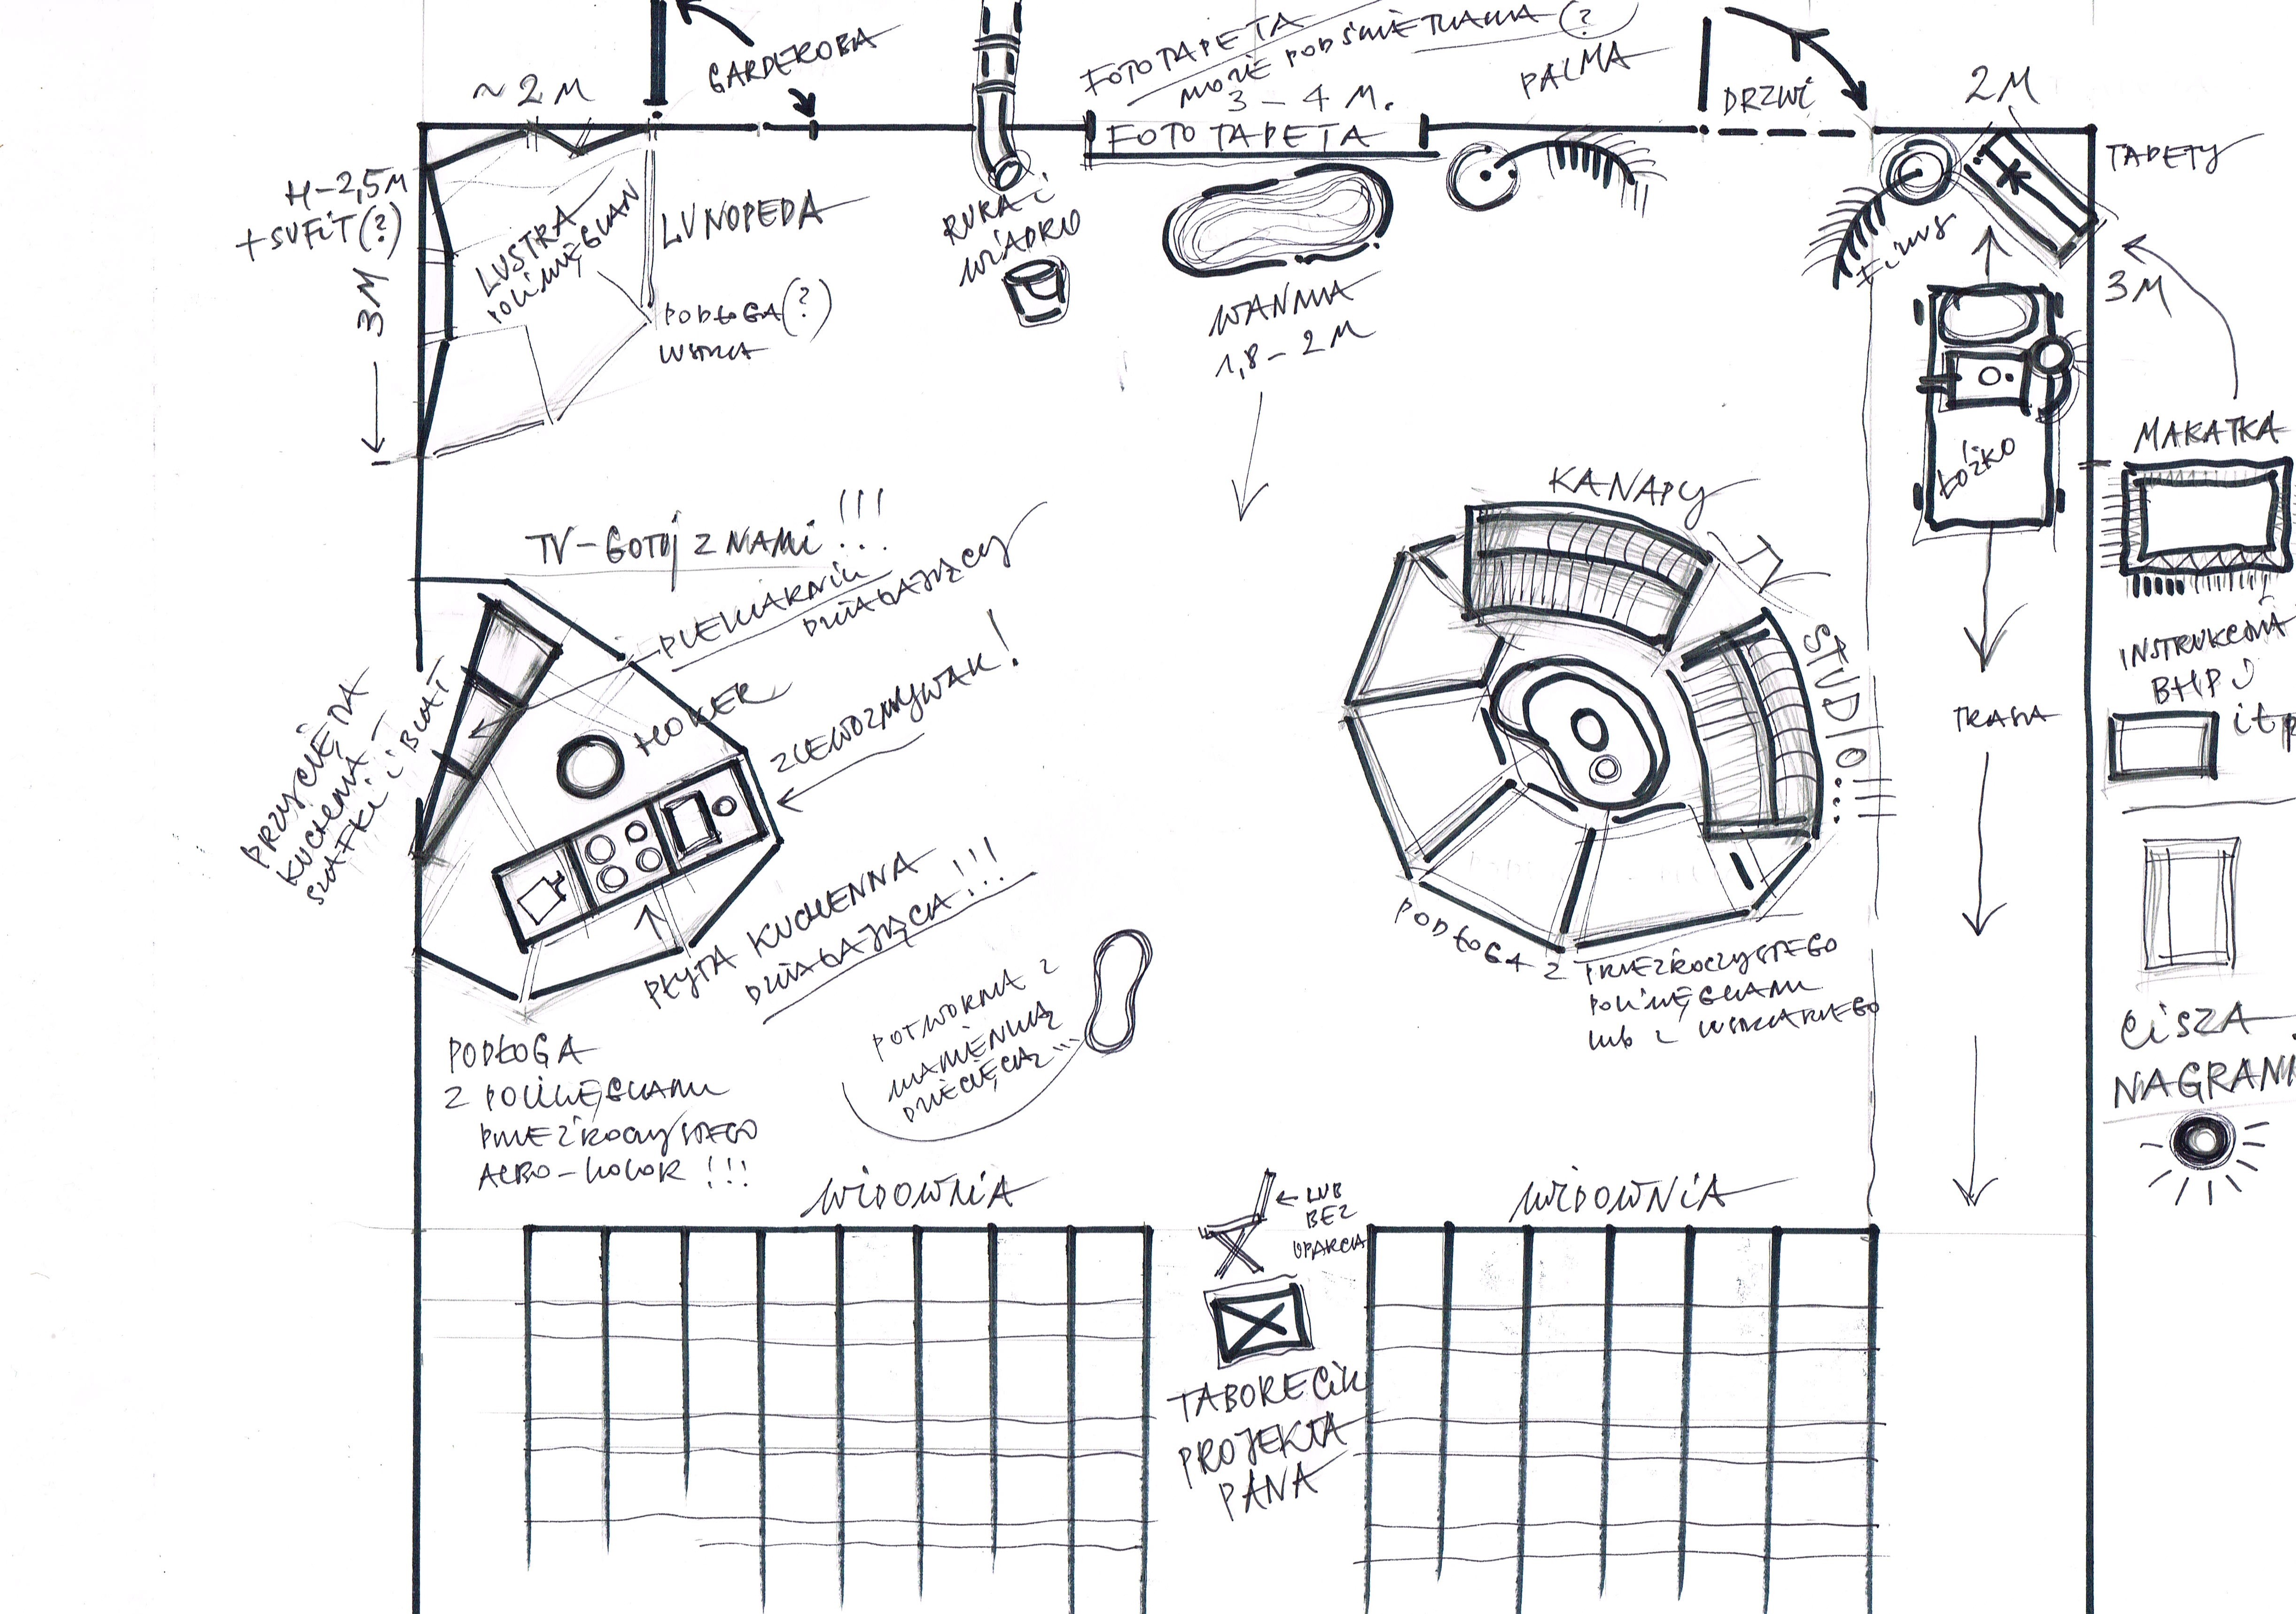 GARDEROBA
~ 2 M
FOTOTAPETA
MOŻE PODŚWIETLANA (?)
3 – 4 M.
FOTOTAPETA
PALMA
DRZWI
2 M
TAPETY
H – 2,5 M
+ SUFIT (?)
3 M
LUSTRA
POLIWĘGLAN
LUNOPEDA
PODŁOGA (?)
LUSTRA
RURA i
WIADRO
WANNA
1,8 – 2 M
FIKUS
3 M
ŁÓŻKO
MAKATKA
INSTRUKCJA
BHP
itp
TRASA
CISZA
NAGRANI
TV – GOTUJ Z NAMI !!!
PIEKARNIK
DZIAŁAJĄCY
HOKER
ZLEWOZMYWAK !
PRZYCIĘTA
KUCHENNA –
SZAFKI i BLAT
PŁYTA KUCHENNA
DZIAŁAJĄCA !!!
KANAPY
TV
STUDIO
PODŁOGA Z PRZEZROCZYSTEGO
POLIWĘGLANU
lub z LUSTRZANEGO
PODŁOGA
Z POLIWĘGLANU
PRZEZROCZYSTEGO
ALBO – KOLOR !!!
POTWORNA Z
DZIECIĘCA
WIDOWNIA
LUB
BEZ
OPARCIA
WIDOWNIA
TABORECIK
PROJEKTA
PANA